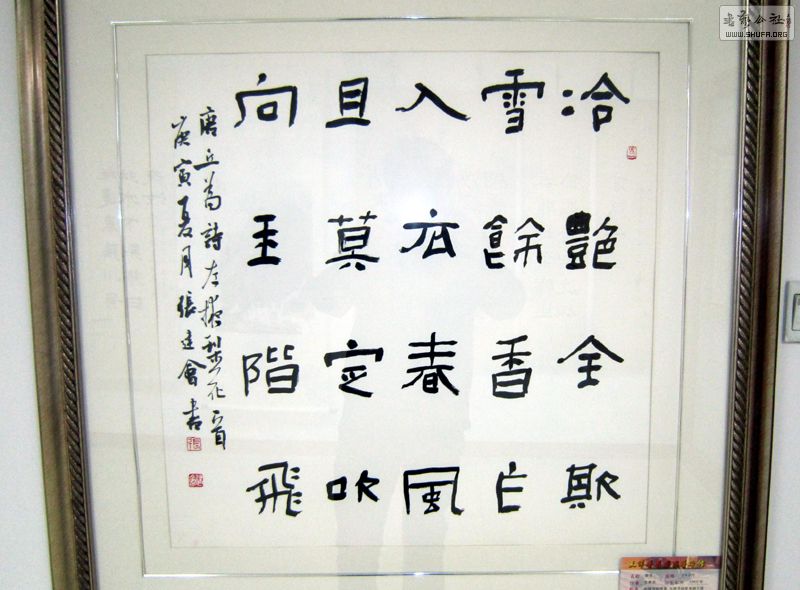 冷艷全欺
雪餘香乍
入衣春風
且莫定吹
向玉階飛
唐丘為詩左掖梨花一首
庚寅夏月張建會書
書法公社
WWW.SHUFA.ORG